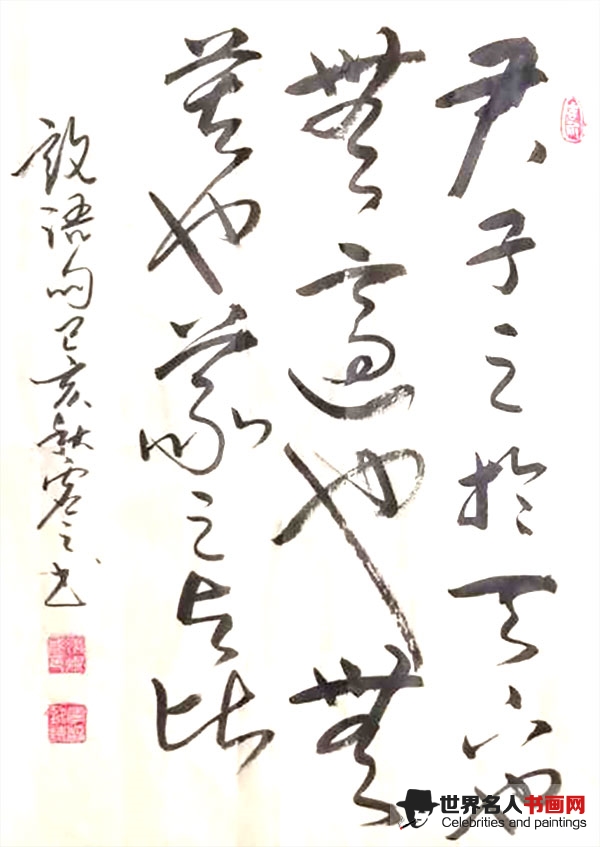 君子之於天下也
無適也無
莫也義之与比
論語句己亥秋之书
世界名人书画网
Celebrities and paintings